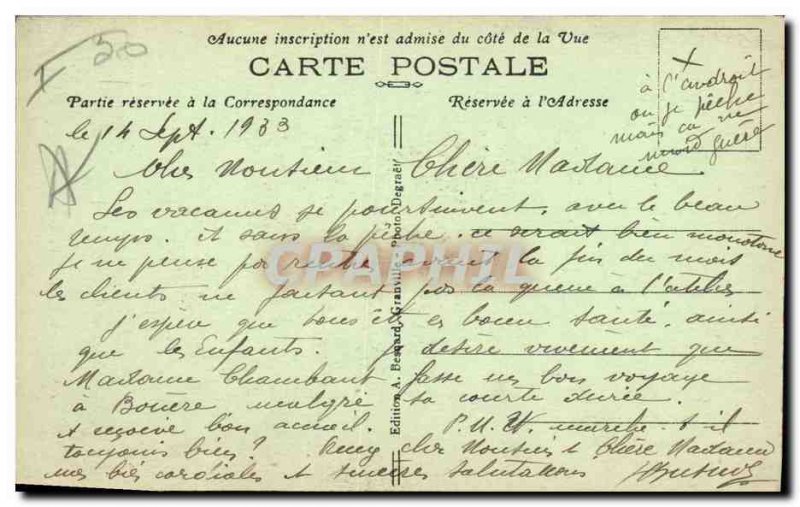 I 50
Aucune inscription n'est admise du côté de la Vue
CARTE POSTALE
Partie réservée à la Correspondance
Réservée à l'Adresse
x à l'endroit
ou je pêche
mais ça ne
mord guère
le 14 Sept. 1933
Cher Monsieur Chère Madame.
Les vacances se poursuivent, avec le beau
temps. et sans la pêche. ce serait bien monotone
je ne pense pas rentrer avant la fin du mois
les clients ne faisant pas la queue à l'atelier
J'espère que tous êtes en bonne santé, ainsi
que les Enfants. Je désire vivement que
Madame Chambaut fasse un bon voyage
à Bouère malgré sa courte durée.
et reçoive bon accueil. P.U. marche-t-il
toujours bien? cher Monsieur & Chère Madame
mes biés cordiales et sincères salutations
Edition A. Besnard, Granville Photo. Degraër
CPAPHIL